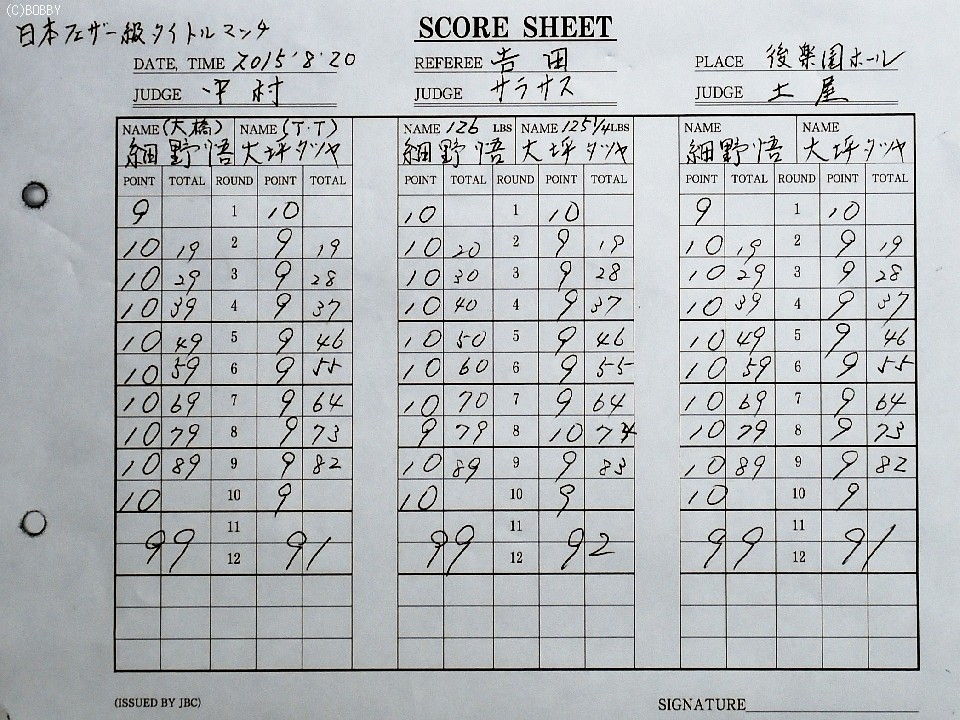 (C)BOBBY
日本フェザー級タイトルマッチ
SCORE SHEET
DATE, TIME 2015'8'20 REFEREE 吉田 PLACE 後楽園ホール
JUDGE 中村 JUDGE サラサス JUDGE 土屋
NAME (大橋) NAME (T.T) NAME 126 LBS NAME 125 1/4 LBS NAME NAME
細野悟 大坪タツヤ 細野悟 大坪タツヤ 細野悟 大坪タツヤ
POINT TOTAL ROUND POINT TOTAL POINT TOTAL ROUND POINT TOTAL POINT TOTAL ROUND POINT TOTAL
9 1 10 10 1 10 9 1 10
10 19 2 9 19 10 20 2 9 19 10 19 2 9 19
10 29 3 9 28 10 30 3 9 28 10 29 3 9 28
10 39 4 9 37 10 40 4 9 37 10 39 4 9 37
10 49 5 9 46 10 50 5 9 46 10 49 5 9 46
10 59 6 9 55 10 60 6 9 55 10 59 6 9 55
10 69 7 9 64 10 70 7 9 64 10 69 7 9 64
10 79 8 9 73 9 79 8 10 74 10 79 8 9 73
10 89 9 9 82 10 89 9 9 83 10 89 9 9 82
10 10 9 10 10 9 10 10 9
11 11 11
99 12 91 99 12 92 99 12 91
(ISSUED BY JBC) SIGNATURE